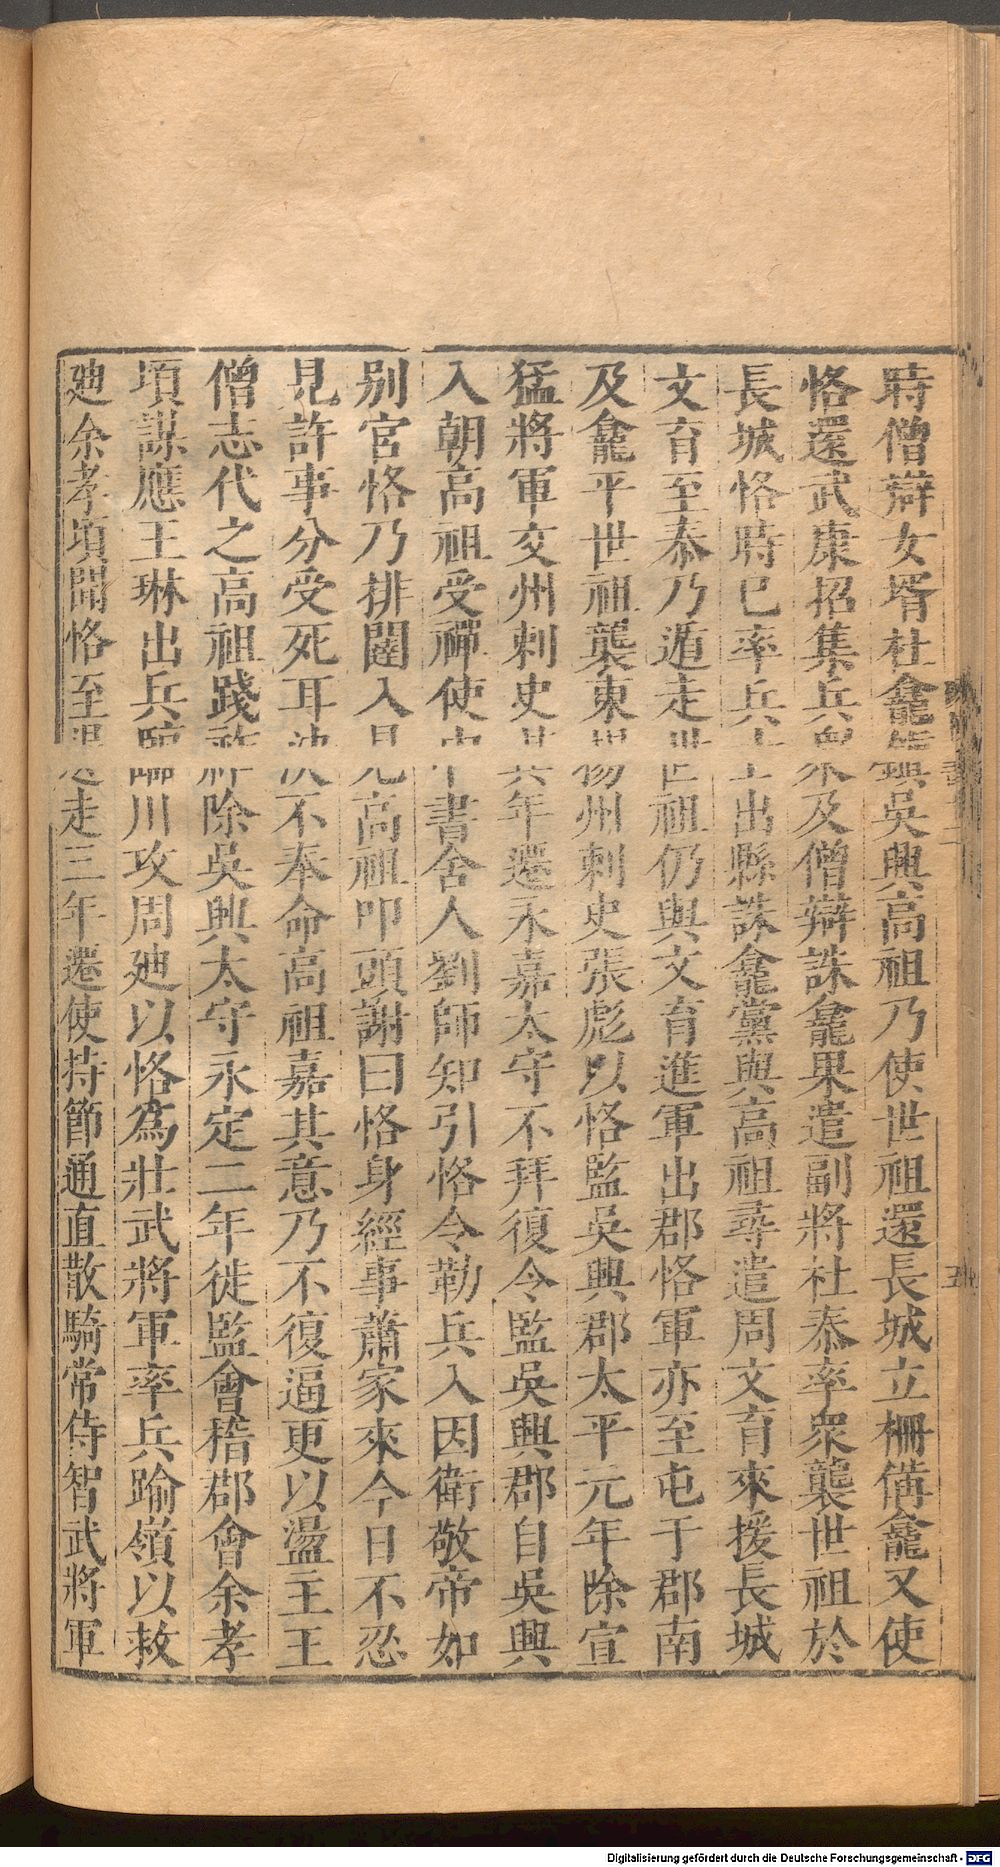 時僧辯女壻杜龕鎮吳興高祖乃使世祖還長城立柵備龕又使
恪還武康招集兵衆及僧辯誅龕果遣副將杜泰率衆襲世祖於
長城恪時巳率兵士出縣誅龕黨與高祖尋遣周文育來援長城
文育至泰乃遁走世祖仍與文育進軍出郡恪軍亦至屯于郡南
及龕平世祖襲東揚州刺史張彪以恪監吳興郡太平元年除宣
猛將軍交州刺史其年遷永嘉太守不拜復令監吳興郡自吳興
入朝高祖受禪使中書舍人劉師知引恪令勒兵入因衛敬帝如
別宮恪乃排闥入見高祖叩頭謝曰恪身經事蕭家來今日不忍
見許事分受死耳決不奉命高祖嘉其意乃不復逼更以盪主王
僧志代之高祖踐祚除吳興太守永定二年徙監會稽郡會余孝
項謀應王琳出兵臨川攻周迪以恪爲壯武將軍率兵踰嶺以救
迪余孝項聞恪至退走三年遷使持節通直散騎常侍智武將軍
五
Digitalisierung gefördert durch die Deutsche Forschungsgemeinschaft - DFG